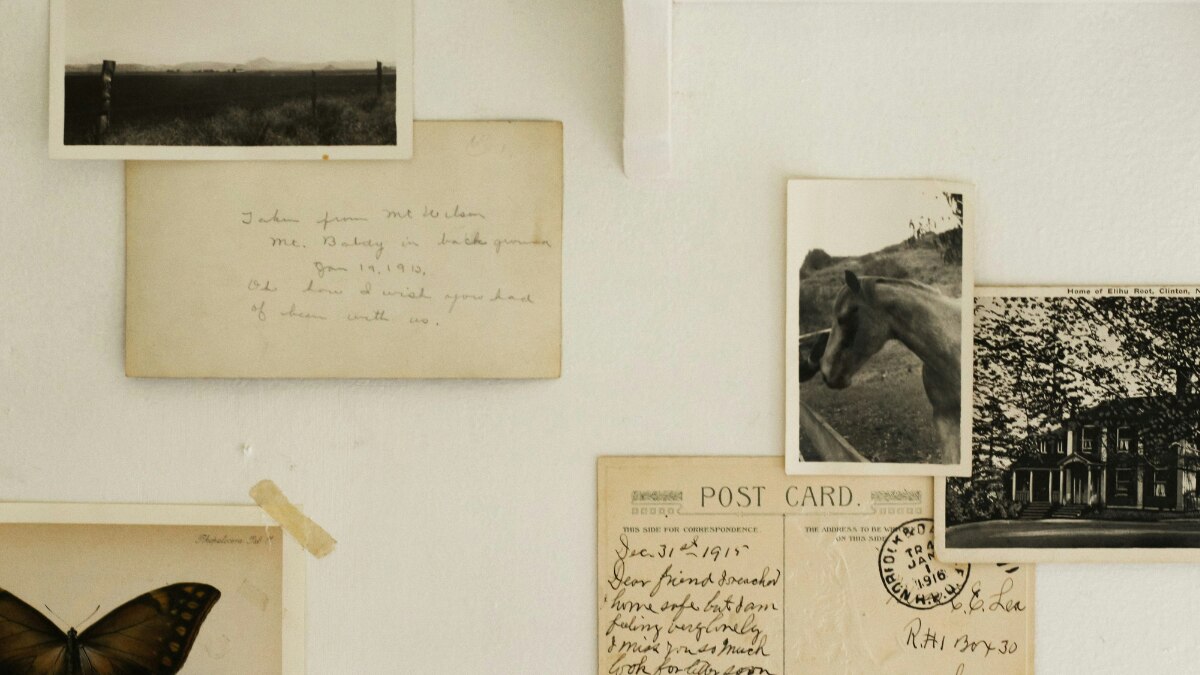 Taken from Mt Wilson
Mt. Baldy in back ground
Jan 19, 1913.
Oh how I wish you had
of been with us.
Home of Elihu Root, Clinton, N
POST CARD.
THIS SIDE FOR CORRESPONDENCE.
THE ADDRESS TO BE
ON THIS SIDE
Dec. 31st 1915
Dear friend I reached
home safe but I am
feeling very lonely
I miss you so much
look for letter soon
NORFOLK
TR
JAN
1
1916
R.P.O.
C.E. Lea
R.#1 Box 30